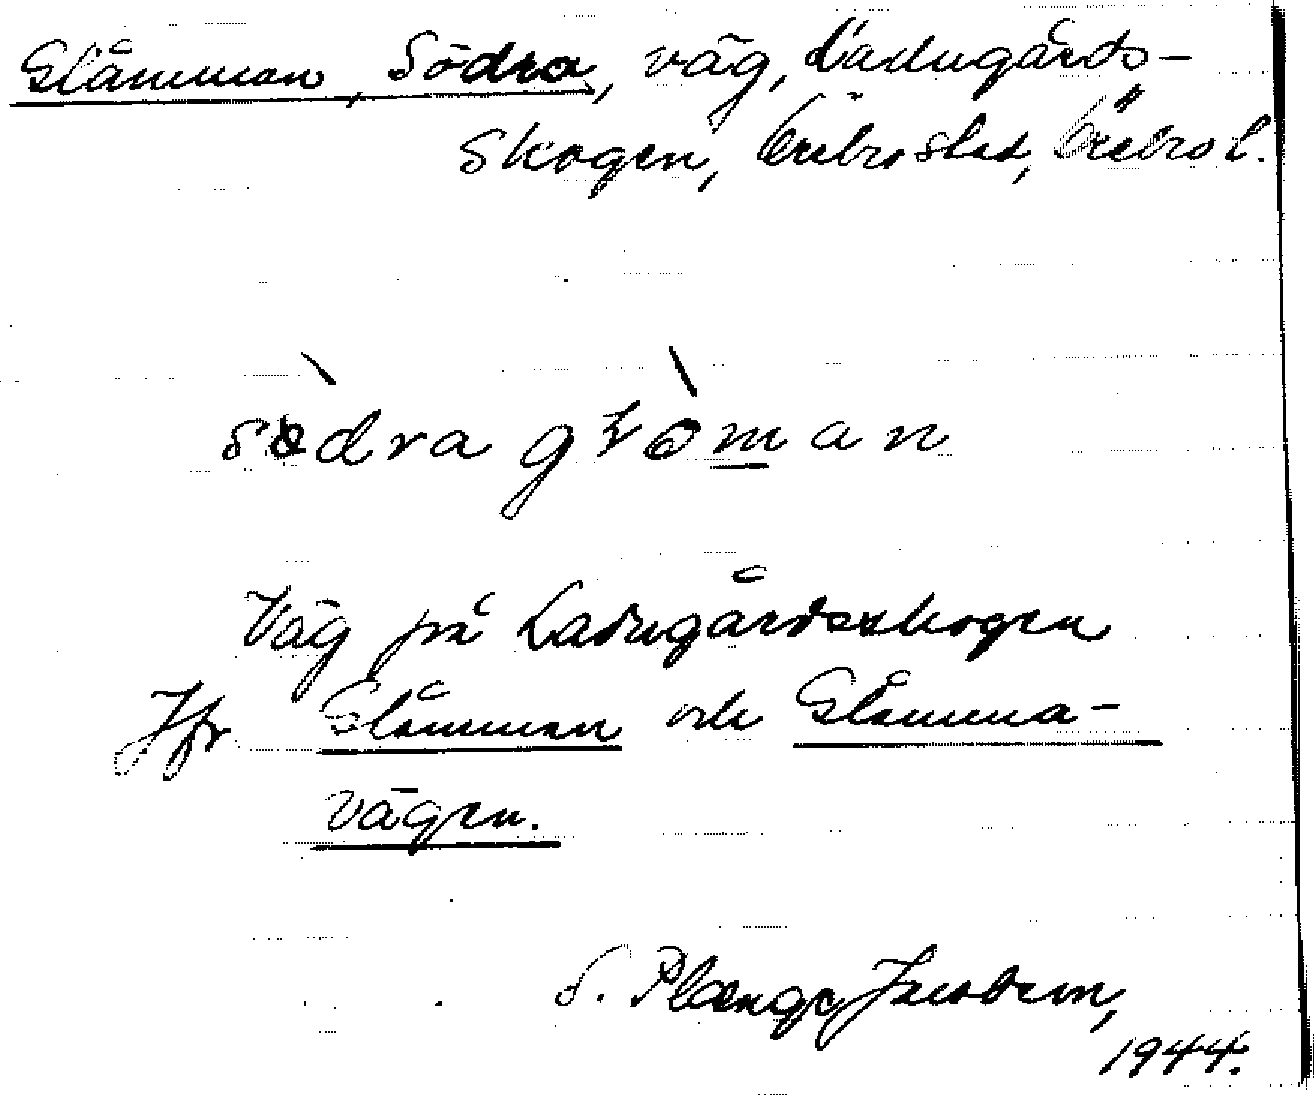 Glåmman, Södra, väg, Ladugårds-
skogen, Örebro stad, Örebro l.
sὸdra gɫὸman
Väg på Ladugårdsskogen
Jfr Glåmman och Glåmma-
vägen.
S. Plænge Jacobson,
1944.